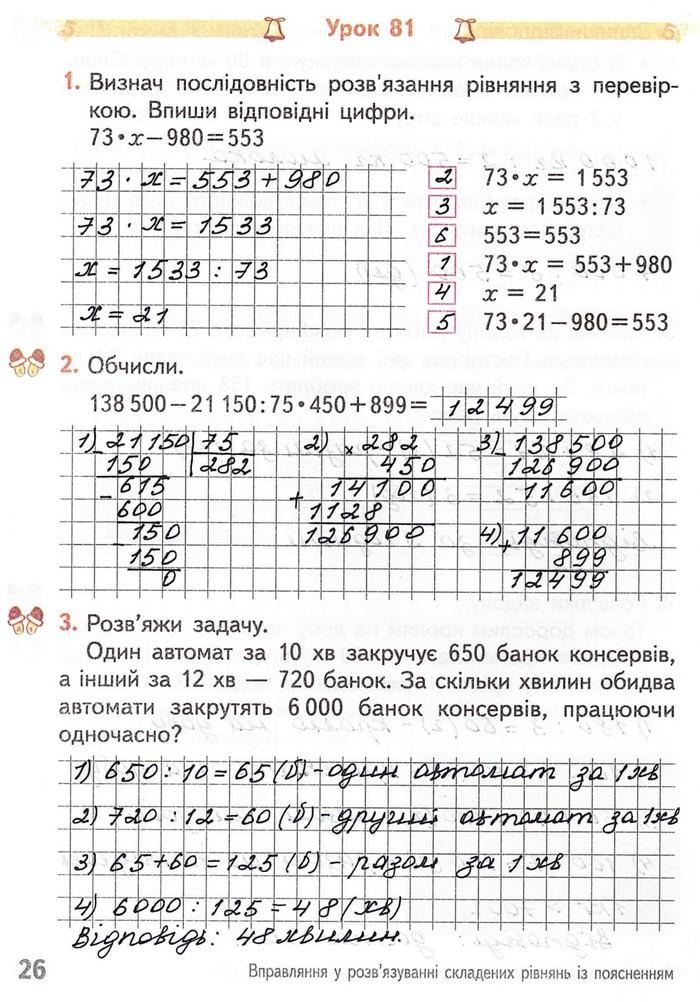 Урок 81
1. Визнач послідовність розв'язання рівняння з перевір-
кою. Впиши відповідні цифри.
73·x−980=553
73 · x = 553 + 980
2 73·x = 1553
3 x = 1553:73
73 · x = 1533
6 553=553
x = 1533 : 73
1 73·x = 553+980
4 x = 21
x = 21
5 73·21−980=553
2. Обчисли.
138 500−21 150:75·450+899= 12499
1) 21150 75 2) × 282 3) 138500
150 282 450 126900
− 615 14100 11600
600 + 1128
− 150 126900 4) 11600
150 + 899
0 12499
3. Розв'яжи задачу.
Один автомат за 10 хв закручує 650 банок консервів,
а інший за 12 хв — 720 банок. За скільки хвилин обидва
автомати закрутять 6 000 банок консервів, працюючи
одночасно?
1) 650 : 10 = 65 (б) - один автомат за 1 хв
2) 720 : 12 = 60 (б) - другий автомат за 1хв
3) 65+60 = 125 (б) - разом за 1 хв
4) 6000 : 125 = 48 (хв)
Відповідь: 48 хвилин.
26 Вправляння у розв'язуванні складених рівнянь із поясненням